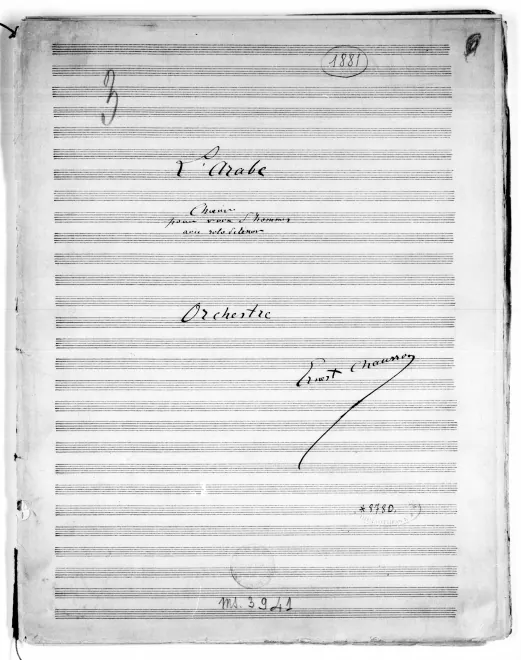 1881
3
L'Arabe
Chœur
pour voix d'hommes
avec solo de tenor
Orchestre
Ernest Chausson
*8780.
ms. 3941